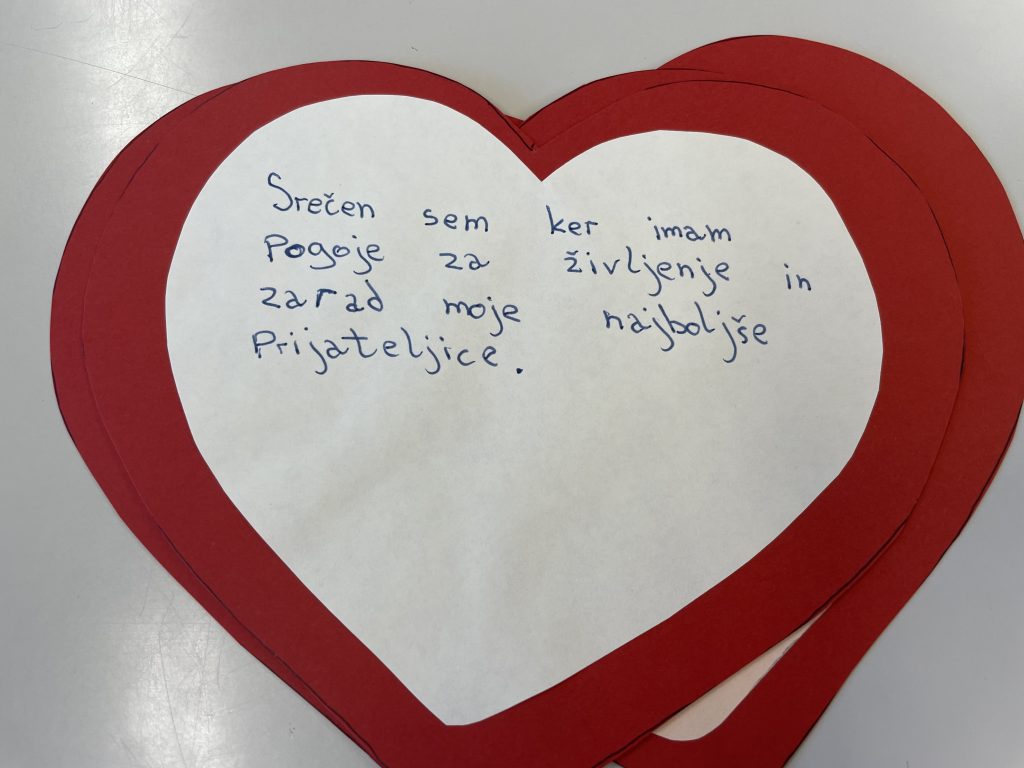 Srečen sem ker imam
Pogoje za življenje in
zarad moje najboljše
Prijateljice.